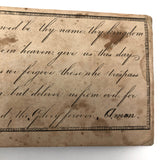 wed be thy name thy kingdom
in heaven; give us this day
us we forgive those who trespass
but deliver us from evil for
the Glory forever. Amen.